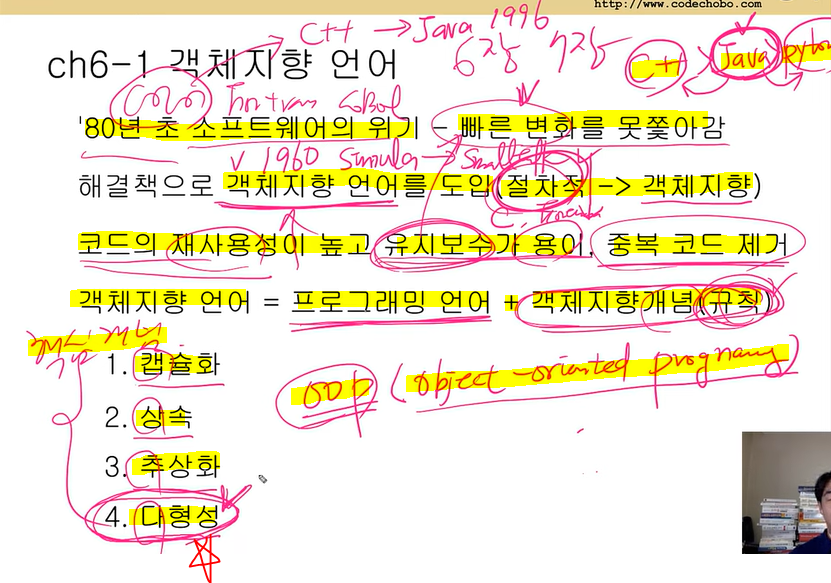 http://www.codechobo.com
C++ → Java 1996
6장 7장
C++ Java
ch6-1 객체지향 언어
Fortran COBOL
'80년 초 소프트웨어의 위기 - 빠른 변화를 못쫓아감
v 1960 Simula →
해결책으로 객체지향 언어를 도입(절차적 -> 객체지향)
C,
코드의 재사용성이 높고 유지보수가 용이, 중복 코드 제거
객체지향 언어 = 프로그래밍 언어 + 객체지향개념(규칙)
핵심개념
1. 캡슐화
OOP (object-oriented
2. 상속
3. 추상화
4. 다형성